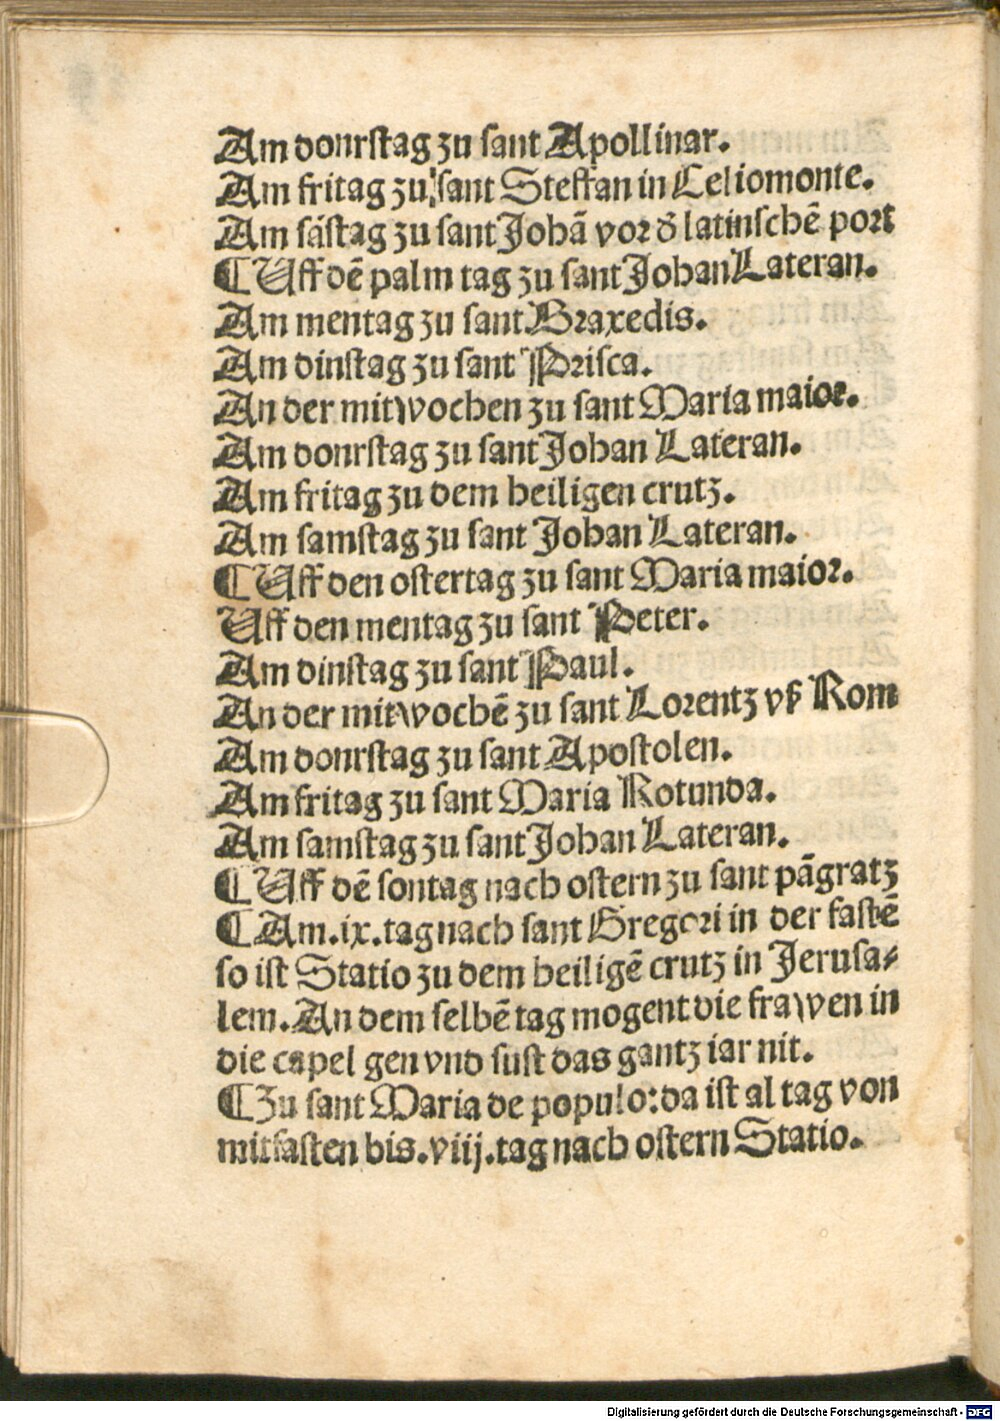 Am donrstag zu sant Apollinar.
Am fritag zu sant Steffan in Celiomonte.
Am sāstag zu sant Johā vor d̄ latinschē port
¶ Uff dē palm tag zu sant Johan Lateran.
Am mentag zu sant Braxedis.
Am dinstag zu sant Prisca.
An der mitwochen zu sant Maria maior.
Am donrstag zu sant Johan Lateran.
Am fritag zu dem heiligen crutz.
Am samstag zu sant Johan Lateran.
¶ Uff den ostertag zu sant Maria maior.
Uff den mentag zu sant Peter.
Am dinstag zu sant Paul.
An der mitwochē zu sant Lorentz vß Rom
Am donrstag zu sant Apostolen.
Am fritag zu sant Maria Rotunda.
Am samstag zu sant Johan Lateran.
¶ Uff dē sontag nach ostern zu sant pāgratz
¶ Am .ix. tag nach sant Gregori in der fastē
so ist Statio zu dem heiligē crutz in Jerusa⸗
lem. An dem selbē tag mogent die frawen in
die capel gen vnd sust das gantz iar nit.
¶ Zu sant Maria de populo: da ist al tag von
mitfasten bis .viij. tag nach ostern Statio.
Digitalisierung gefördert durch die Deutsche Forschungsgemeinschaft - DFG